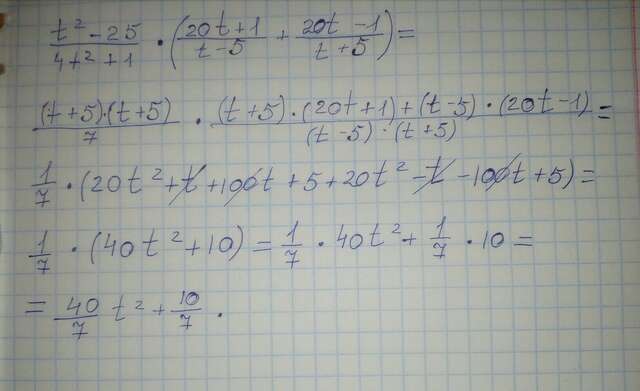 (t² - 25)/(4t² + 1) · ((20t + 1)/(t - 5) + (20t - 1)/(t + 5)) =
((t + 5)·(t + 5))/7 · ((t + 5)·(20t + 1) + (t - 5)·(20t - 1))/((t - 5)·(t + 5)) =
1/7 · (20t² + t + 100t + 5 + 20t² - t - 100t + 5) =
1/7 · (40t² + 10) = 1/7 · 40t² + 1/7 · 10 =
= 40/7 t² + 10/7 .